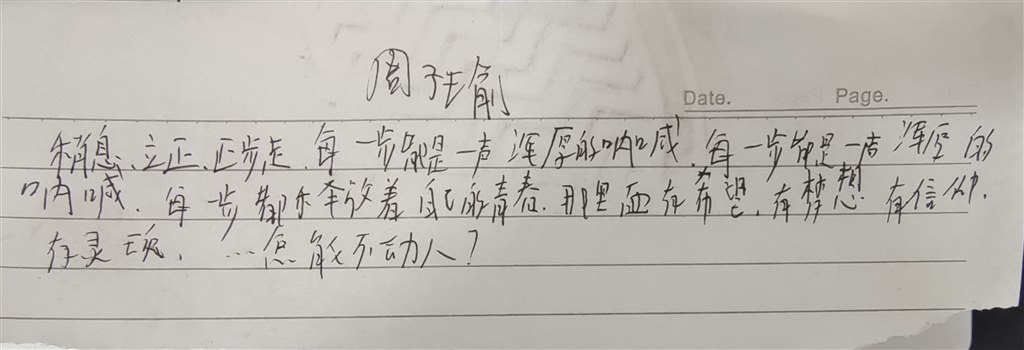 周子瑜
Date. Page.
稍息、立正、正步走、每一步都是一声浑厚的呐喊、每一步都是一声浑厚的
呐喊、每一步都在李放着自己的青春、那里面有希望、有梦想、有信仰、
有灵魂、…怎能不动人？